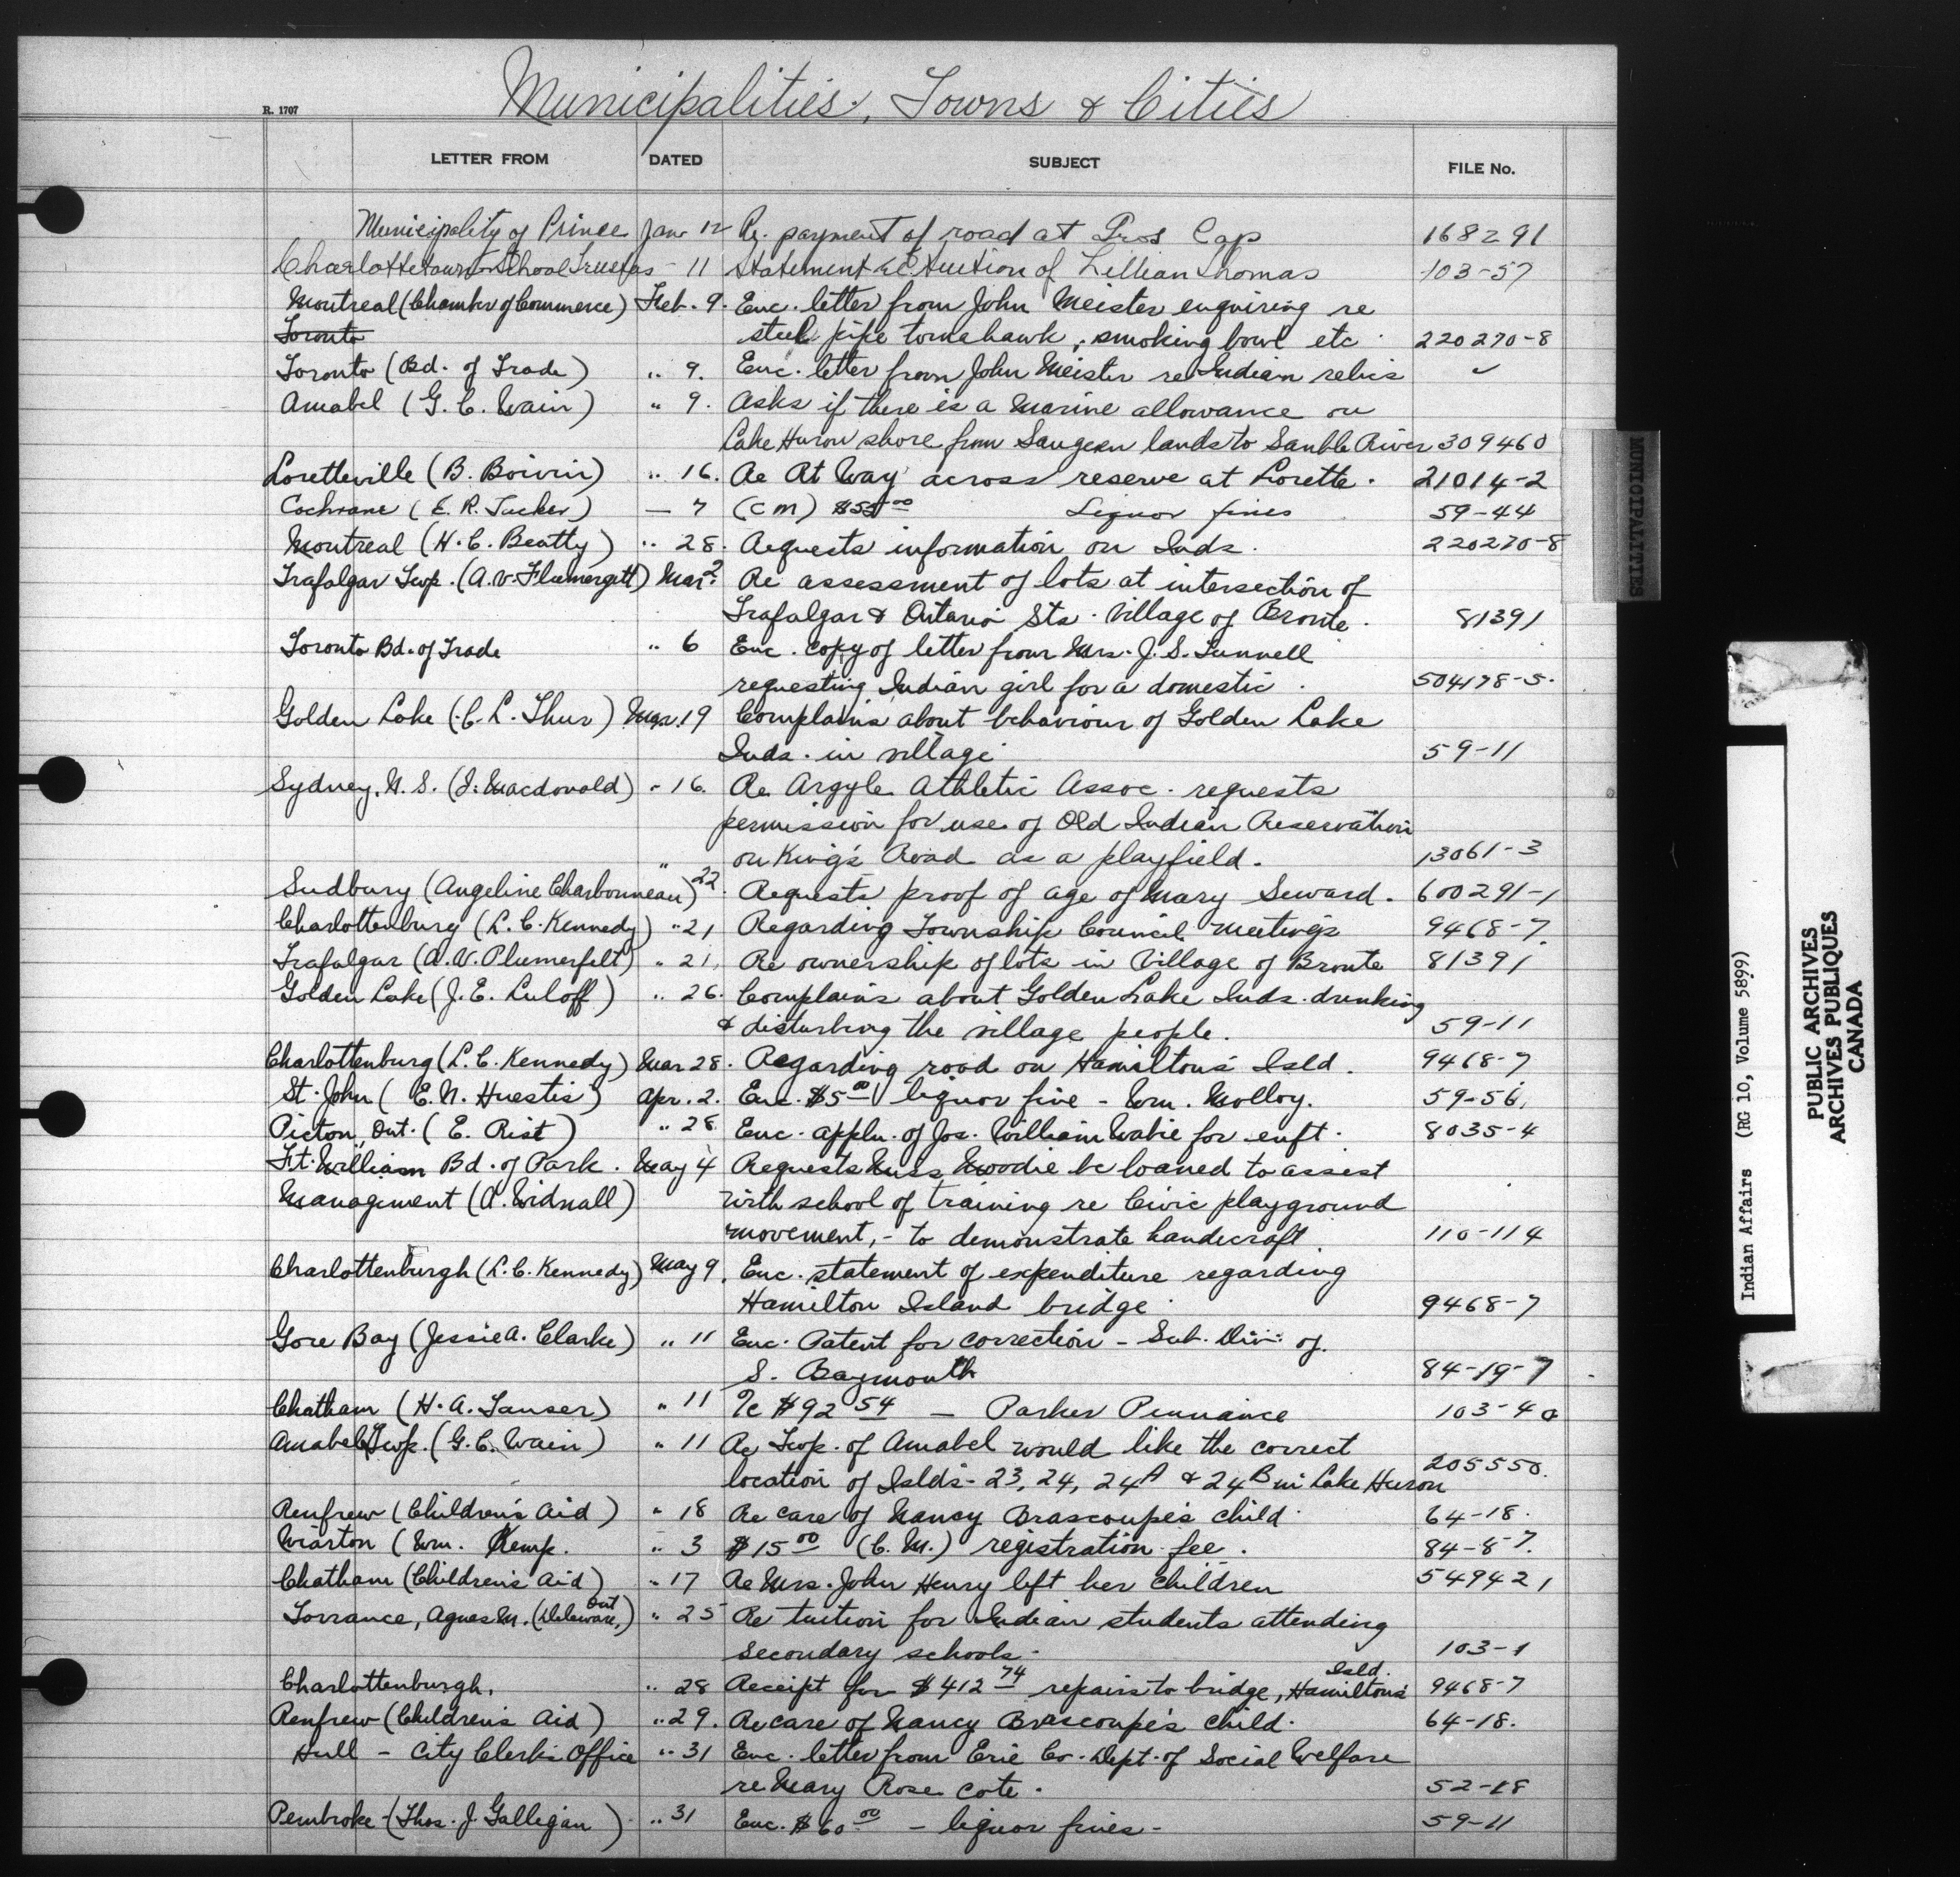 Municipalities, Towns & Cities
R. 1707
LETTER FROM DATED SUBJECT FILE No.
Municipality of Prince Jan 12 Re. payment of road at Gros Cap 168291
Charlottetown School Trustees - 11 Statement re tuition of Lillian Thomas 103-57
Montreal (Chamber of Commerce) Feb. 9. Enc. letter from John Meister enquiring re
Toronto steel pipe tomahawk, smoking bowl etc. 220270-8
Toronto (Bd. of Trade) " 9. Enc. letter from John Meister re Indian relics ✓
Amabel (G. C. Wain) " 9. Asks if there is a Marine allowance on
Lake Huron shore from Saugeen lands to Sauble River 309460
Loretteville (B. Boivin) " 16. Re Rt Way across reserve at Lorette. 21014-2
Cochrane (E. R. Tucker) — 7 (CM) $55.00 Liquor fines 59-44
Montreal (H. C. Beatty) " 28. Requests information on Inds. 220270-8
Trafalgar Twp. (A. V. Flumergitt) Mar. 2 Re assessment of lots at intersection of
Trafalgar & Ontario Sts. Village of Bronte. 81391
Toronto Bd. of Trade " 6 Enc. copy of letter from Mrs. J. S. Tunnell
requesting Indian girl for a domestic. 504178-5.
Golden Lake (C. L. Thur) Mar. 19 Complains about behaviour of Golden Lake
Inds. in village 59-11
Sydney, N. S. (J. Macdonald) " 16. Re Argyle Athletic Assoc. requests
permission for use of Old Indian Reservation
" on King's Road as a playfield. 13061-3
Sudbury (Angeline Charbonneau) 22. Requests proof of age of Mary Seward. 600291-1
Charlottenburg (L. C. Kennedy) " 21 Regarding Township Council meetings 9468-7.
Trafalgar (A. V. Plumerfelt) " 21, Re ownership of lots in Village of Bronte 81391
Golden Lake (J. E. Luloff) " 26. Complains about Golden Lake Inds. drinking
& disturbing the village people. 59-11
Charlottenburg (L. C. Kennedy) Mar 28. Regarding road on Hamilton's Isld. 9468-7
St. John (E. N. Huestis) Apr. 2. Enc. $5.00 liquor fine - Wm. Molloy. 59-56.
Picton, Ont. (E. Rist) " 28 Enc. appln. of Jos. William Wabie for enft. 8035-4
Ft. William Bd. of Park. May 4 Requests Miss Moodie be loaned to assist
Management (A. Widnall) with school of training re Civic playground
movement, - to demonstrate handicraft. 110-114
Charlottenburgh (L. C. Kennedy) May 9. Enc. statement of expenditure regarding
Hamilton Island bridge 9468-7
Gore Bay (Jessie A. Clarke) " 11 Enc. Patent for correction - Sub. Div. of.
S. Baymouth 84-19-7
Chatham (H. A. Tanser) " 11 a/c $92.54 — Parker Pennance 103-40
Amabel Twp. (G. C. Wain) " 11 Re Twp. of Amabel would like the correct
location of Islds- 23, 24, 24A & 24B in Lake Huron 205550.
Renfrew (Children's Aid) " 18 Re care of Nancy Brascoupe's child 64-18.
Wiarton (Wm. Kemp. " 3 $15.00 (C. M.) registration fee. 84-8-7.
Chatham (Children's Aid) " 17 Re Mrs. John Henry left her children 549421
Torrance, Agnes M. (Delaware, Ont) " 25 Re tuition for Indian students attending
secondary schools. 103-1
Charlottenburgh. " 28 Receipt for $412.74 repairs to bridge, Hamilton's Isld. 9468-7
Renfrew (Children's Aid) " 29. Re care of Nancy Brascoupe's child. 64-18.
Hull - City Clerk's Office " 31 Enc. letter from Erie Co. Dept. of Social Welfare
re Mary Rose Cote. 52-18
Pembroke - (Thos. J. Galligan) " 31 Enc. $60.00 - liquor fines - 59-11
MUNICIPALITIES
Indian Affairs (RG 10, Volume 5899)
PUBLIC ARCHIVES
ARCHIVES PUBLIQUES
CANADA